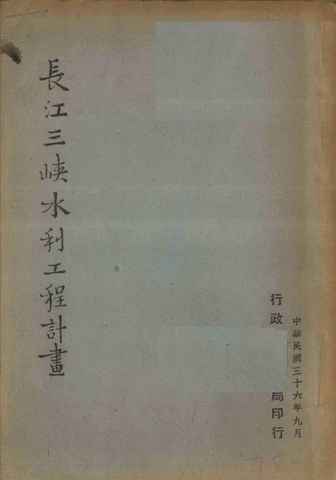 長江三峽水利工程計畫
中華民國三十六年九月
行政
局印行